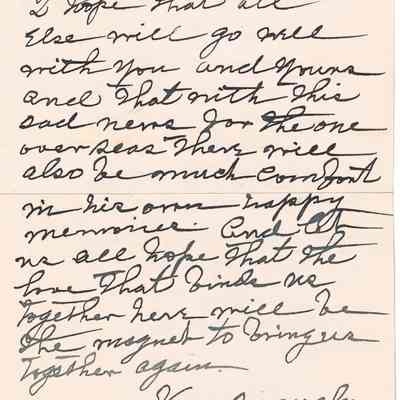 I hope that all
Else will go well
with you and yours
and that with this
sad news for the one
over seas there will
also be much comfort
in his own happy
memories. And let
us all hope that the
love that binds us
together here will be
the magnet to bring us
together again.